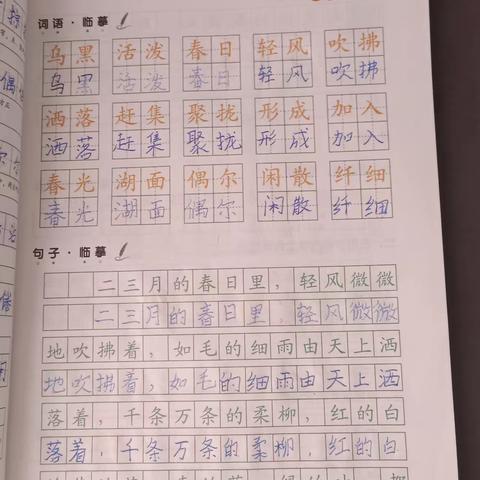 词语·临摹
乌黑 活泼 春日 轻风 吹拂
乌黑 活泼 春日 轻风 吹拂
洒落 赶集 聚拢 形成 加入
洒落 赶集 聚拢 形成 加入
春光 湖面 偶尔 闲散 纤细
春光 湖面 偶尔 闲散 纤细
句子·临摹
二三月的春日里，轻风微微
二三月的春日里，轻风微微
地吹拂着，如毛的细雨由天上洒
地吹拂着，如毛的细雨由天上洒
落着，千条万条的柔柳，红的白
落着，千条万条的柔柳，红的白